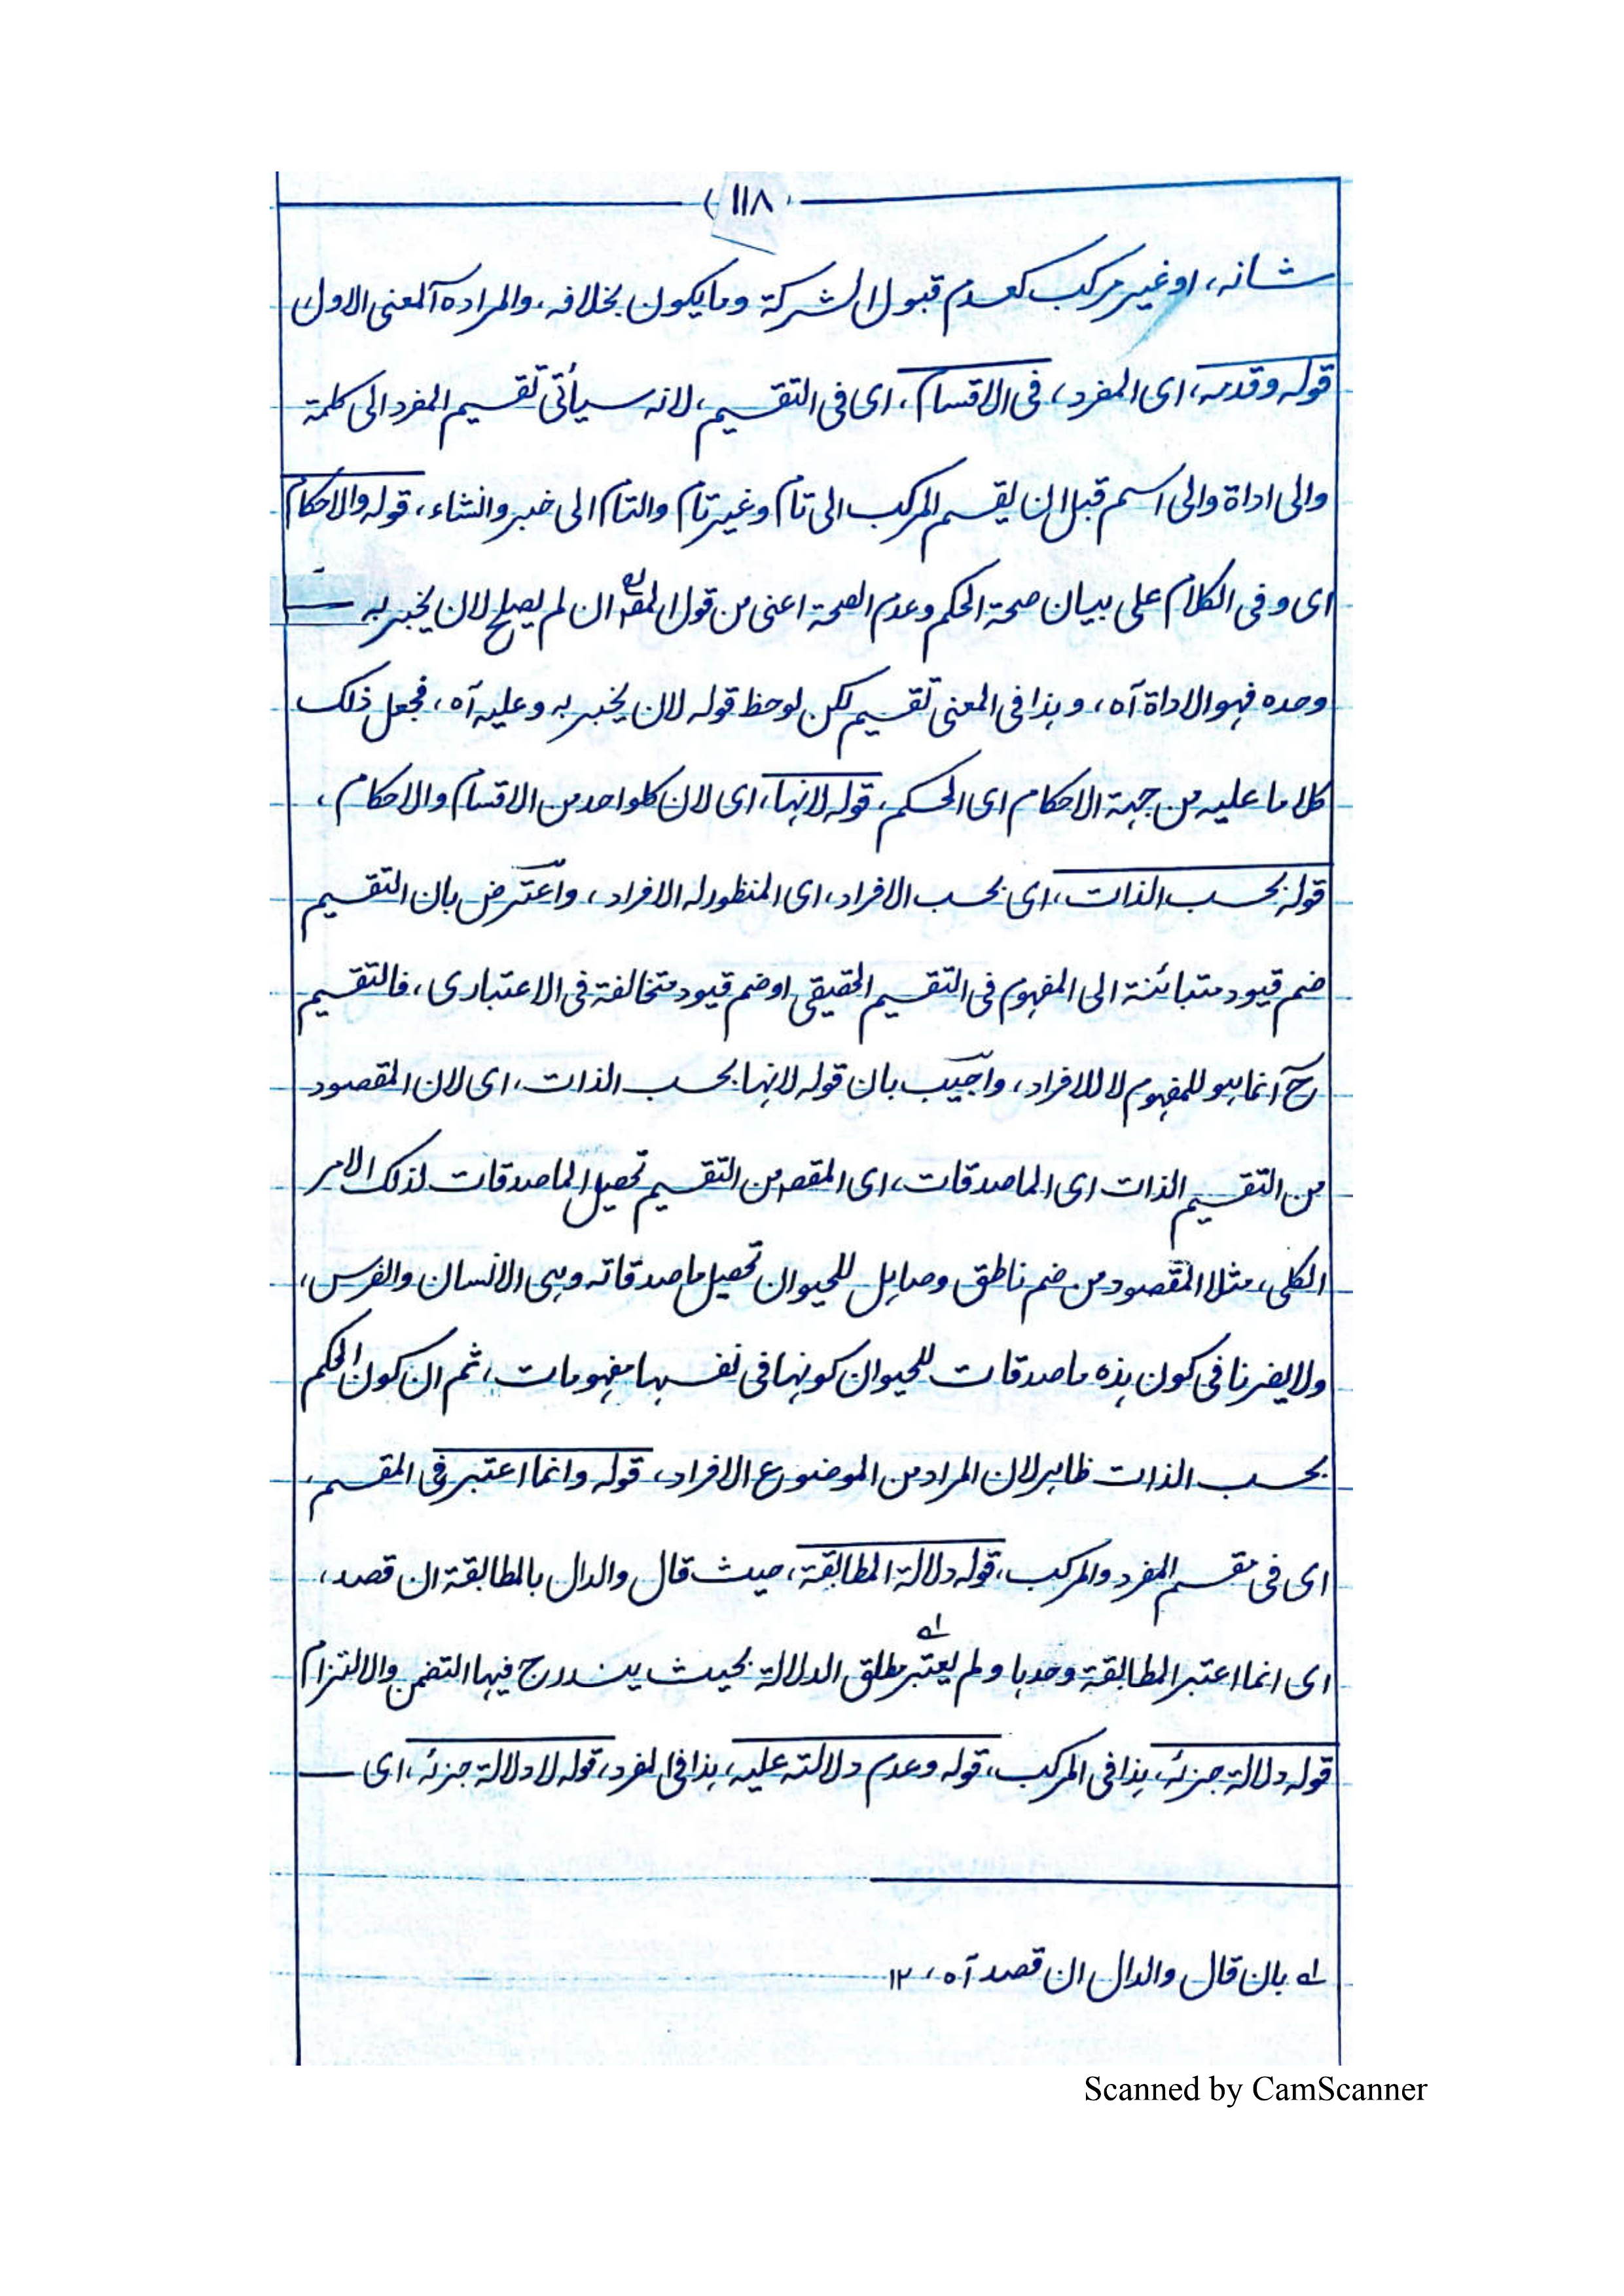 (١١٨)
شانه، او غير مركب كعدم قبول الشركة وما يكون بخلافه، والمراد ه‍آ المعنى الاول
قوله وقدمه، اى المفرد، فى الاقسام، اى فى التقسيم، لانه سيأتى تقسيم المفرد الى كلمة
والى اداة والى اسم قبل ان يقسم المركب الى تام وغير تام والتام الى خبر وانشاء، قوله والاحكام
اى و فى الكلام على بيان صحة الحكم وعدم الصحة اعنى من قول المصـ ان لم يصلح لان يخبر به
وحده فهو الاداة آه، وهذا فى المعنى تقسيم لكن لوحظ قوله لان يخبر به وعليه آه، فجعل ذلك
كلاما عليه من جهة الاحكام اى الحكم، قوله لانهما، اى لان كلواحد من الاقسام والاحكام،
قوله بحسب الذات، اى بحسب الافراد، اى المنظور له الافراد، واعترض بان التقسيم
ضم قيود متبائنة الى المفهوم فى التقسيم الحقيقى او ضم قيود متخالفة فى الاعتبارى، فالتقسيم
ح آنما هو للمفهوم لا للافراد، واجيب بان قوله لانها بحسب الذات، اى لان المقصود
من التقسيم الذات اى الماصدقات، اى المقصـ من التقسيم تحصيل الماصدقات لذلك الامر
الكلى، مثلا المقصود من ضم ناطق وصاهل للحيوان تحصيل ماصدقاته وهى الانسان والفرس،
ولا يضرنا فى كون هذه ماصدقات للحيوان كونها فى نفسها مفهومات، ثم ان كون الحكم
بحسب الذات ظاهر لان المراد من الموضوع الافراد، قوله وانما اعتبر فى المقسم،
اى فى مقسم المفرد والمركب، قوله دلالة المطابقة، حيث قال والدال بالمطابقة ان قصد،
اى انما اعتبر المطابقة وحدها ولم يعتبر مطلق الدلالة بحيث يندرج فيها التضمن والالتزام
قوله دلالة جزئه، هذا فى المركب، قوله وعدم دلالته عليه، هذا فى المفرد، قوله لا دلالة جزئه، اى
له بان قال والدال ان قصد آه، ١٢
Scanned by CamScanner